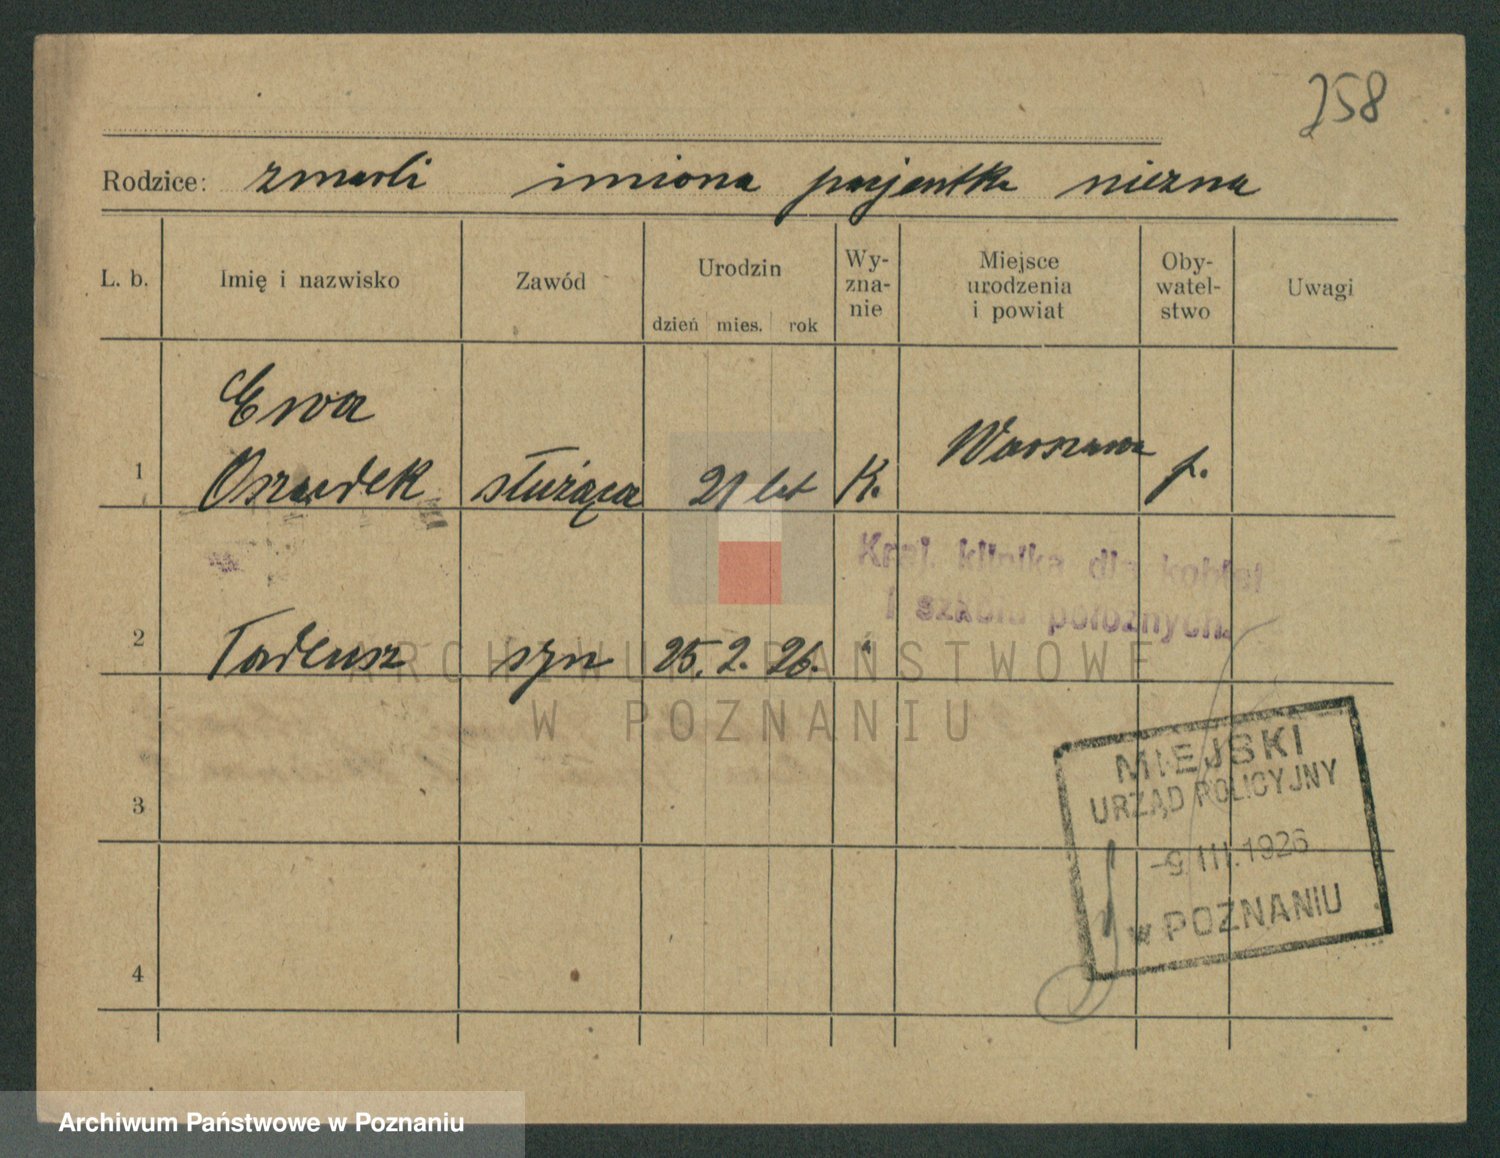 258
Rodzice: zmarli imiona pacjentka niezna
L. b. Imię i nazwisko Zawód Urodzin dzień mies. rok Wy-zna-nie Miejsce urodzenia i powiat Oby-watel-stwo Uwagi
Ewa
1 Oszudek służąca 21 let K. Warszawa p.
Kraj. klinika dla kobiet
i szkoła położnych.
2 Tadeusz syn 25. 2. 26. "
ARCHIWUM PAŃSTWOWE
W POZNANIU
3
MIEJSKI
URZĄD POLICYJNY
-9. III. 1926
w POZNANIU
4
Archiwum Państwowe w Poznaniu